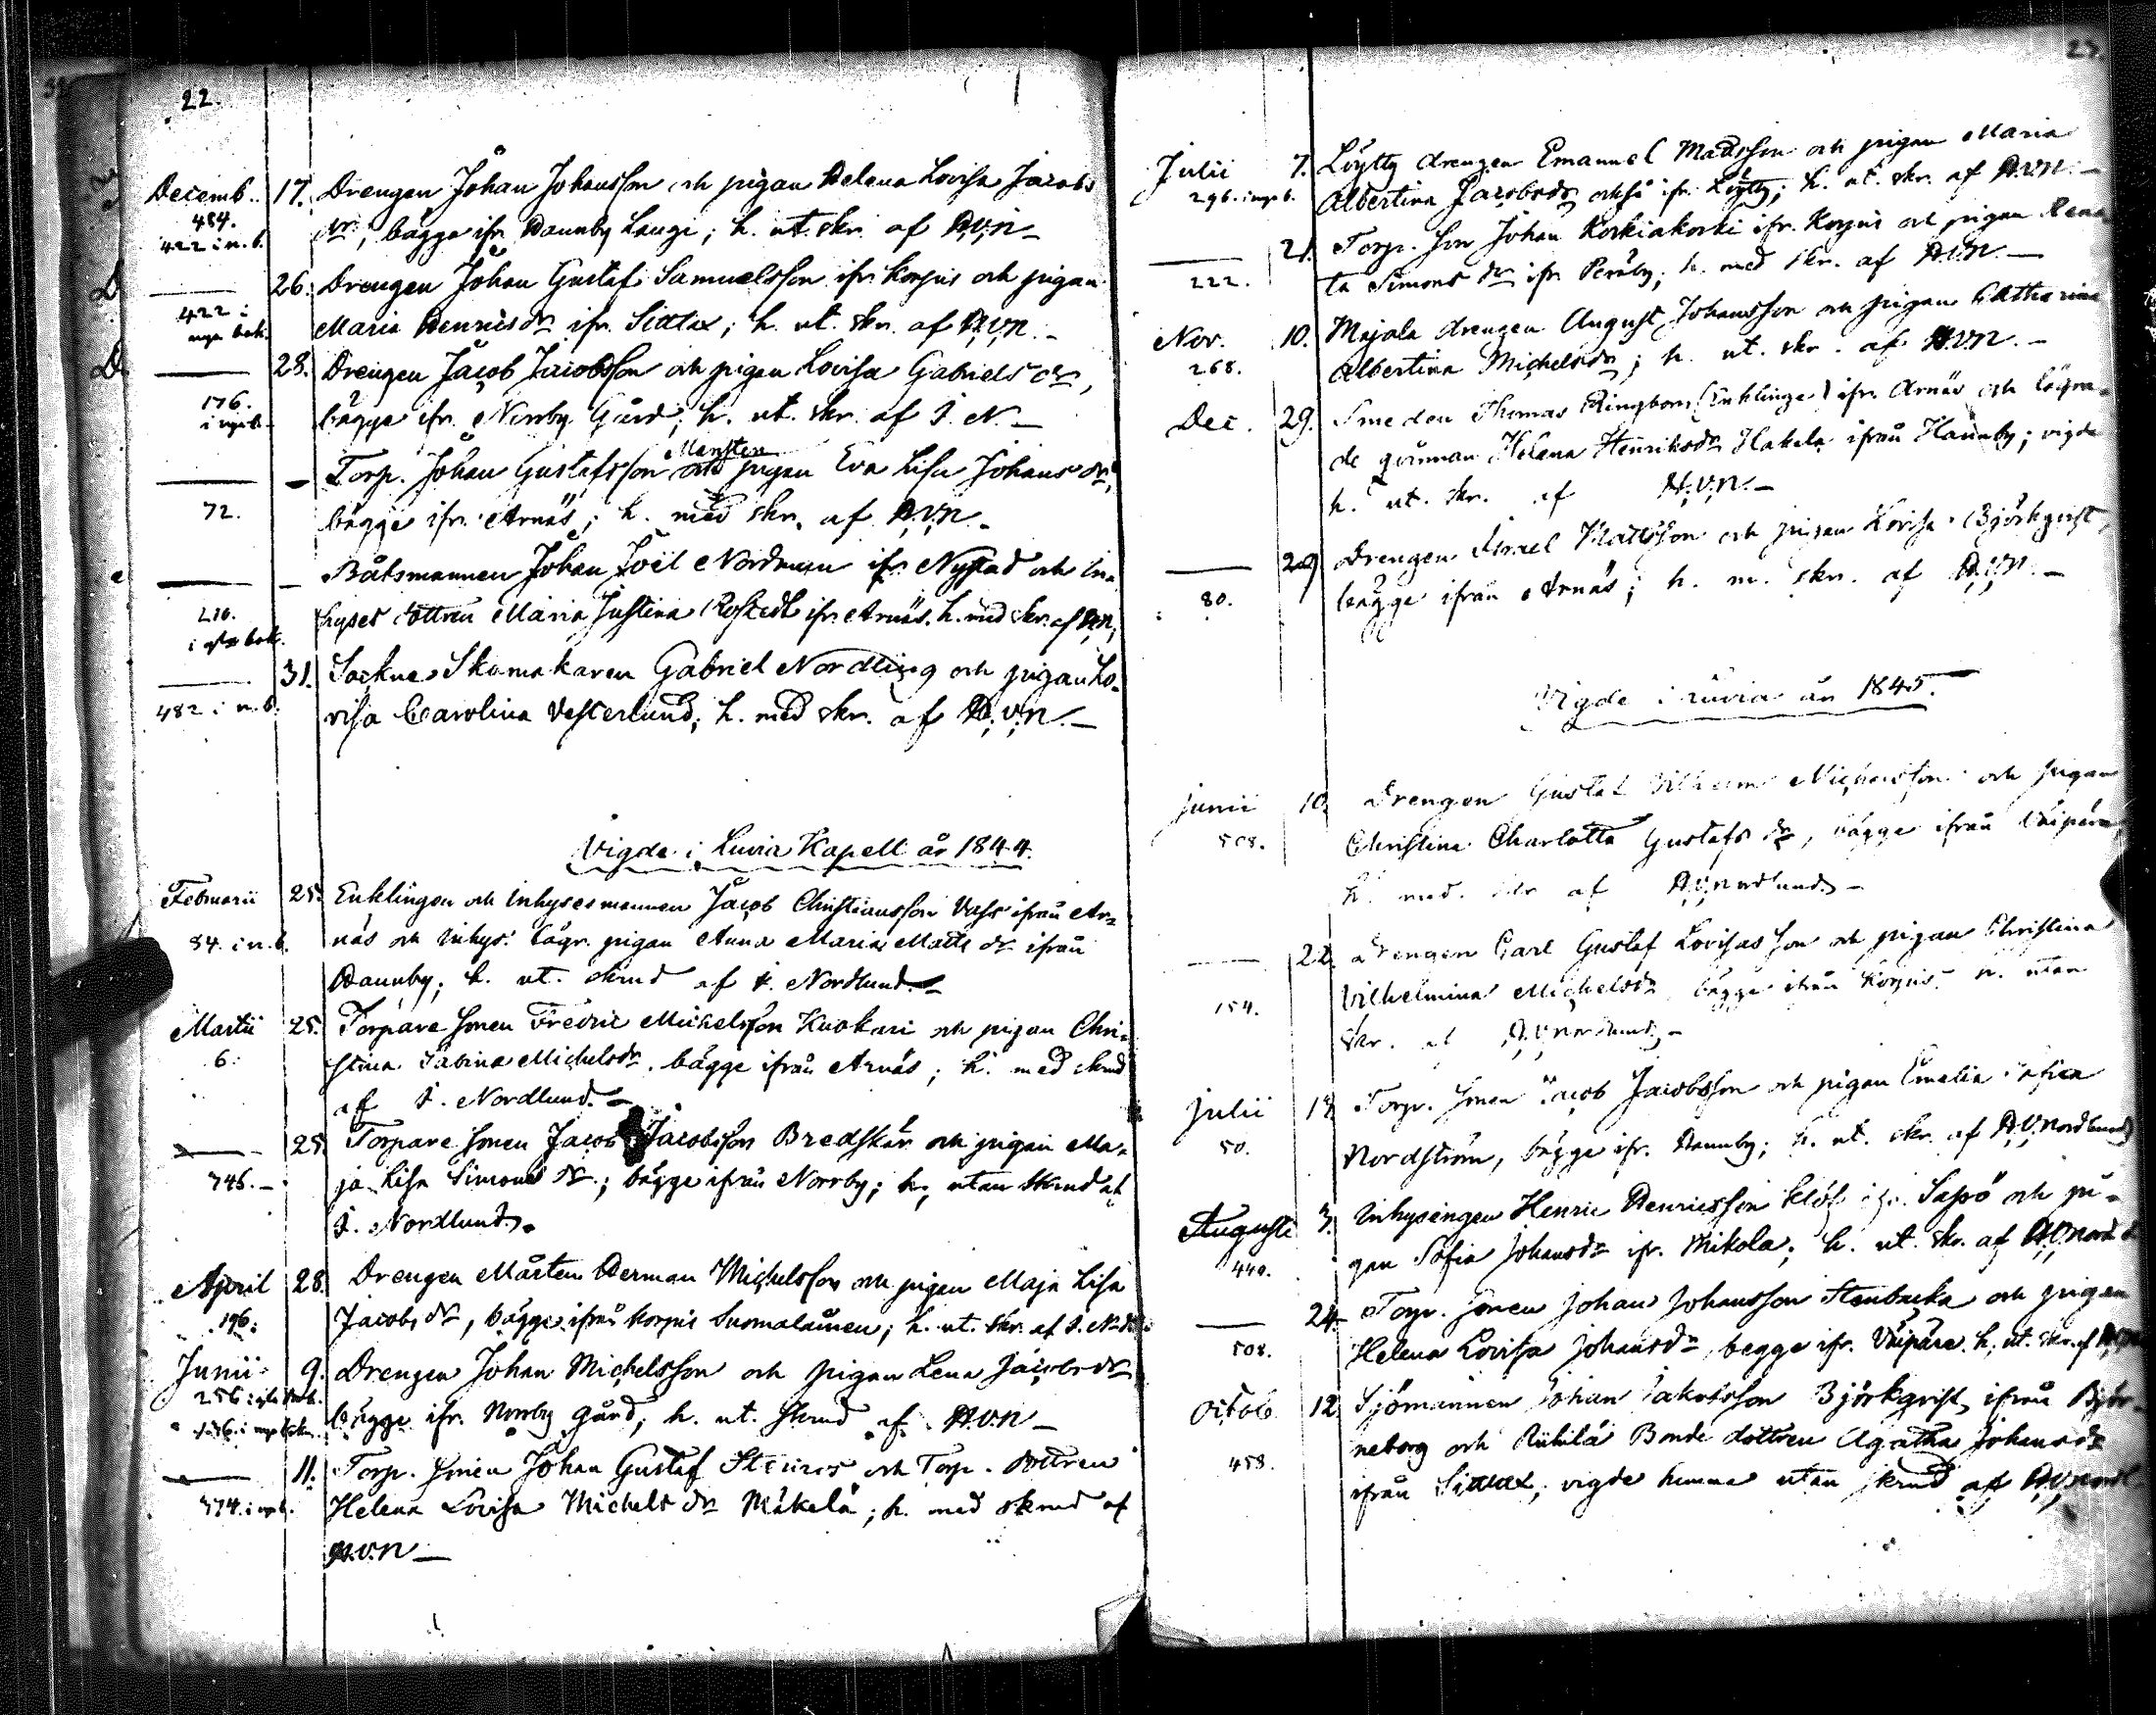 22.
Decemb. 17. Drengen Johan Johansson och pigan Helena Lovisa Jacobs
484. dr, bägge ifr. Hannby Laugi; h. ut. skr. af H.V.N.
422 i n. b.
26. Drengen Johan Gustaf Samuelsson ifr. Korpis och pigan
422 i Maria Henricsdr ifr. Sittlax; h. ut. skr. af H.V.N.
nya bok.
28. Drengen Jacob Jacobsson och pigan Lovisa Gabriels dr,
176. bägge ifr. Norrby Gård; h. ut. skr. af J. N.
Mansten
Torp. Johan Gustafsson och pigan Eva Lisa Johans dr,
72. bägge ifr. Arnäs; h. med skr. af H.V.N.
Båtsmannen Johan Joël Nordman ifr Nystad och In-
210. hyses dottren Maria Justina Rostedt ifr. Arnäs. h. med skr. af H.V.N.
31. Sockne Skomakaren Gabriel Nordling och pigan Lo-
482 i n. b. visa Carolina Vesterlund; h. med skr. af H.V.N.
Vigde i Luvia Kapell år 1844.
Februarii 25. Enklingen och Inhysesmannen Jacob Christiansson Vass ifrån Ar-
84. i n. b. näs och Inhys. lägr. pigan Anna Maria Matts dr ifrån
Hannby; h. ut. skrud af J. Nordlund.
Martii 25. Torpare sonen Fredric Michelsson Kuokari och pigan Chri-
6. stina Sabina Michelsdr. bägge ifrån Arnäs; h. med skrud
af J. Nordlund.
25. Torpare sonen Jacob Jacobsson Bredskär och pigan Ma-
746. ja Lisa Simons dr.; bägge ifrån Norrby; h. utan skrud af
J. Nordlund.
April 28. Drengen Mårten Herman Michelsson och pigan Maja Lisa
196. Jacobs dr, bägge ifrån Korpis Suomalainen; h. ut. skr. af J. N
Junii 9. Drengen Johan Michelsson och pigan Lena Jacobs dr
256 bägge ifr. Norrby gård; h. ut. skrud af H.V.N.
11. Torp. Sonen Johan Gustaf och Torp. Dottren
374. Helena Lovisa Michels dr Mäkelä; h. med skrud af
H.V.N.
23.
Julii 7. Löytty drengen Emanuel Mattsson och pigan Maria
296. Albertina Jacobsdr också ifr. Löytty; h. ut. skr. af H.V.N.
21. Torp. Son Johan Koskiakorki ifr. Korpis och pigan Rena
222. ta Simons dr ifr. Peräby; h. med skr. af H.V.N.
Nov. 10. Majala drengen August Johansson och pigan Catharina
268. Albertina Michelsdr; h. ut. skr. af H.V.N.
Dec. 29. Smeden Thomas Ringbom (Enklinge) ifr. Arnäs och lägra-
de qvinnan Helena Henriksdr Hakela ifrån Hannby; vigde
h. ut. skr. af H.V.N.
29 Drengen Israel Mattsson och pigan Lovisa Björkqvist,
80. bägge ifrån Arnäs; h. m. skr. af H.V.N.
Vigde i Luvia år 1845.
Junii 10. Drengen Gustaf Vilhelm Michelsson och pigan
508. Christina Charlotta Gustafs dr, bägge ifrån Väipäre,
h. med. skr af H.V.Nordlund
22. Drengen Carl Gustaf Lovisas Son och pigan Christina
154. Vilhelmina Michelsdr bägge ifrån Korpis h. utan
skr. af H.V.Nordlund
Julii 14 Torp. Sonen Jacob Jacobsson och pigan Emelia Sofia
50. Nordström, bägge ifr. Hannby; h. ut. skr. af H.V.Nordlund
Augusti 3. Inhysingen Henric Henricsson ifr. Sassö och pi-
440. gan Sofia Johansdr ifr. Mikola; h. ut. skr. af H.V.Nord
24. Torp. sonen Johan Johansson Stenbacka och pigan
508. Helena Lovisa Johansdr, begge ifr. Väipäre. h. ut. skr. af
Octob 12 Sjömannen Johan Jakobsson Björkqvist, ifrån Björ-
neborg och Riihilä Bonde dottren Agatha Johansdr
458. ifrån Sittlax; vigde hemma utan skrud af H.V.Nordl